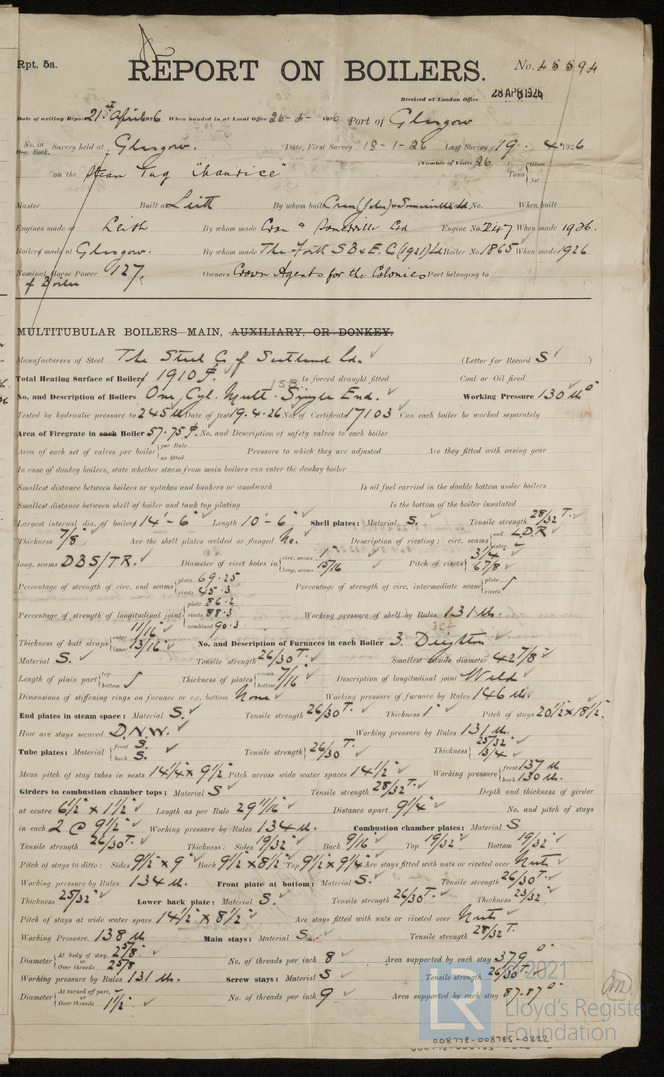 Rpt. 5a.
REPORT ON BOILERS.
No. 45594
Received at London Office 28 APR 1926
Date of writing Report 21st April 1926 When handed in at Local Office 26-4-1926 Port of Glasgow
No. in Reg. Book. Survey held at Glasgow. Date, First Survey 18-1-26 Last Survey 19. 4. 1926
(Number of Visits 26)
on the Steam Tug "Maurice" Tons { Gross Net
Master Built at Leith By whom built Cran (John) & Somerville Ld. Yard No. When built
Engines made at Leith By whom made Cran & Somerville Ld Engine No. 247 When made 1926.
Boilers made at Glasgow. By whom made The Forth S B & E. C (1921) Ld Boiler No. 1865 When made 1926
Nominal Horse Power 127 Owners Crown Agents for the Colonies Port belonging to
of Boiler
MULTITUBULAR BOILERS MAIN, AUXILIARY, OR DONKEY.
Manufacturers of Steel The Steel Co of Scotland Ld. (Letter for Record S)
Total Heating Surface of Boilers 1910 Is forced draught fitted Coal or Oil fired
No. and Description of Boilers One, Cyl. Mult. Single End. Working Pressure 130 lb
Tested by hydraulic pressure to 245 lb Date of test 19.4.26 No. of Certificate 17103 Can each boiler be worked separately
Area of Firegrate in each Boiler 57.75 No. and Description of safety valves to each boiler
Area of each set of valves per boiler { per Rule as fitted Pressure to which they are adjusted Are they fitted with easing gear
In case of donkey boilers, state whether steam from main boilers can enter the donkey boiler
Smallest distance between boilers or uptakes and bunkers or woodwork Is oil fuel carried in the double bottom under boilers
Smallest distance between shell of boiler and tank top plating Is the bottom of the boiler insulated
Largest internal dia. of boilers 14'-6" Length 10'-6" Shell plates: Material S. Tensile strength 28/32 T.
Thickness 7/8" Are the shell plates welded or flanged No. Description of riveting: circ. seams { end L.D.R inter.
long. seams DBS/TR. Diameter of rivet holes in { circ. seams 1" long. seams 15/16 Pitch of rivets { 3 1/4 6 7/8
Percentage of strength of circ. end seams { plate 69.25 rivets 45.3 Percentage of strength of circ. intermediate seam { plate rivets
Percentage of strength of longitudinal joint { plate 86.2 rivets 88.3 combined 90.3 Working pressure of shell by Rules 131 lb.
Thickness of butt straps { outer 11/16 inner 13/16 No. and Description of Furnaces in each Boiler 3. Deighton
Material S. Tensile strength 26/30 T. Smallest outside diameter 42 7/8
Length of plain part { top bottom Thickness of plates { crown bottom 7/16 Description of longitudinal joint Weld
Dimensions of stiffening rings on furnace or c.c. bottom None Working pressure of furnace by Rules 146 lb.
End plates in steam space: Material S. Tensile strength 26/30 T. Thickness 1" Pitch of stays 20 1/2 x 18 1/2
How are stays secured D.N.W. Working pressure by Rules 131 lb.
Tube plates: Material { front S. back S. Tensile strength { 26/30 T. Thickness { 25/32 3/4
Mean pitch of stay tubes in nests 14 1/4 x 9 1/2 Pitch across wide water spaces 14 1/2" Working pressure { front 137 lb back 130 lb.
Girders to combustion chamber tops: Material S Tensile strength 28/32 T. Depth and thickness of girder
at centre 6 1/2" x 1 1/2" Length as per Rule 29 11/16 Distance apart 9 1/4" No. and pitch of stays
in each 2 @ 9 1/2" Working pressure by Rules 134 lb. Combustion chamber plates: Material S
Tensile strength 26/30 T. Thickness: Sides 19/32 Back 9/16 Top 19/32 Bottom 19/32
Pitch of stays to ditto: Sides 9 1/2 x 9" Back 9 1/2 x 8 1/2" Top 9 1/2 x 9 1/4 Are stays fitted with nuts or riveted over Nuts
Working pressure by Rules 134 lb. Front plate at bottom: Material S. Tensile strength 26/30 T.
Thickness 25/32 Lower back plate: Material S. Tensile strength 26/30 T. Thickness 23/32
Pitch of stays at wide water space 14 1/2 x 8 1/2" Are stays fitted with nuts or riveted over Nuts
Working Pressure 138 lb Main stays: Material S. Tensile strength 28/32 T.
Diameter { At body of stay, 2 5/8" or Over threads 2 5/8 No. of threads per inch 8 Area supported by each stay 379
Working pressure by Rules 131 lb. Screw stays: Material S Tensile strength 26/30 T.
Diameter { At turned off part, or Over threads 1 1/2" No. of threads per inch 9 Area supported by each stay 87.87
© 2021
LR Lloyd's Register
Foundation
008778-008785-0222